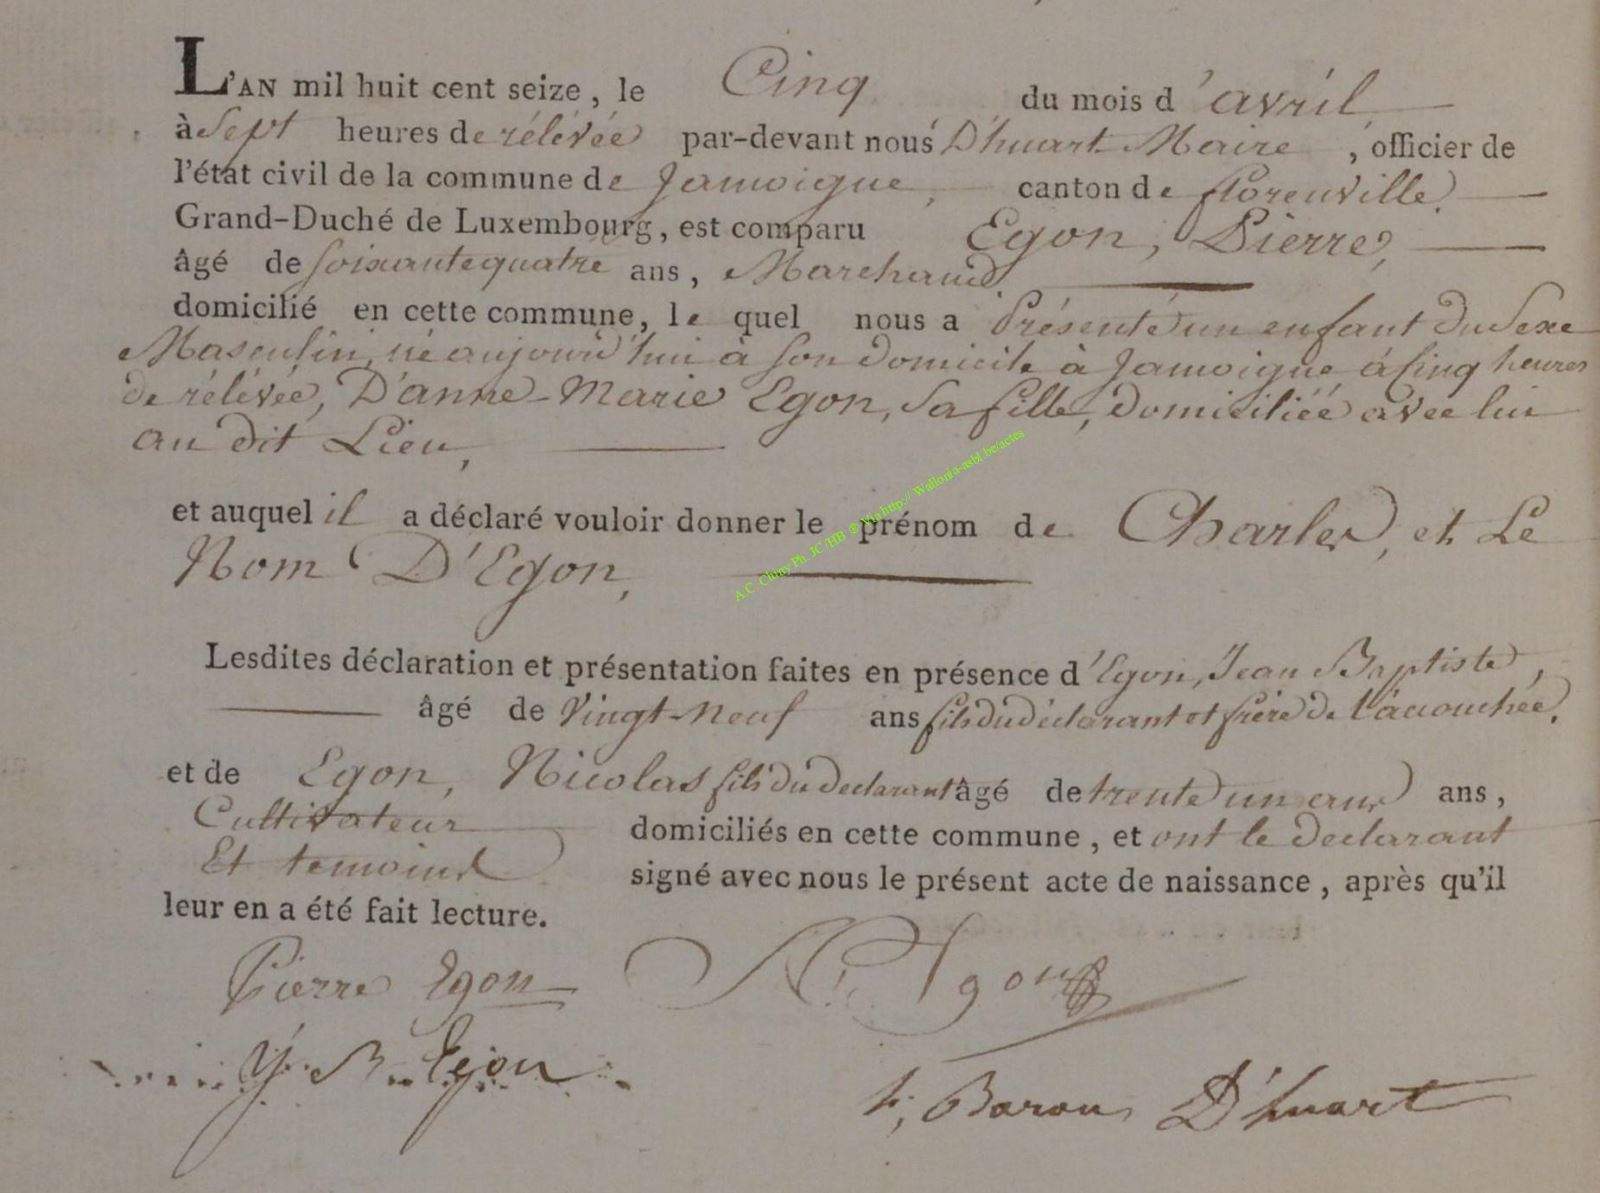 L'AN mil huit cent seize, le Cinq du mois d'avril
à Sept heures de rélévée par-devant nous D'huart Maire, officier de
l'état civil de la commune de Jamoigne, canton de florenville.
Grand-Duché de Luxembourg, est comparu Egon, Pierre,
âgé de soixante quatre ans, Marchand
domicilié en cette commune, le quel nous a Présenté un enfant du Sexe
Masculin, né aujourd'hui à son domicile à Jamoigne à Cinq heures
de rélévée, D'anne-Marie Egon, Sa fille, domiciliée avec lui
au dit Lieu,
et auquel il a déclaré vouloir donner le prénom de Charles, et Le
Nom D'Egon,
A.C. Chiny Ph. JC/HB @ Via http:// Wallonia-asbl.be/actes
Lesdites déclaration et présentation faites en présence d'Egon, Jean Baptiste,
âgé de Vingt-Neuf ans fils du déclarant et frère de l'accouchée.
et de Egon, Nicolas fils du declarant âgé de trente un ans ans,
Cultivateur domiciliés en cette commune, et ont le declarant
Et temoins signé avec nous le présent acte de naissance, après qu'il
leur en a été fait lecture.
Pierre Egon N. Egon
J. B. Egon
Baron D'huart